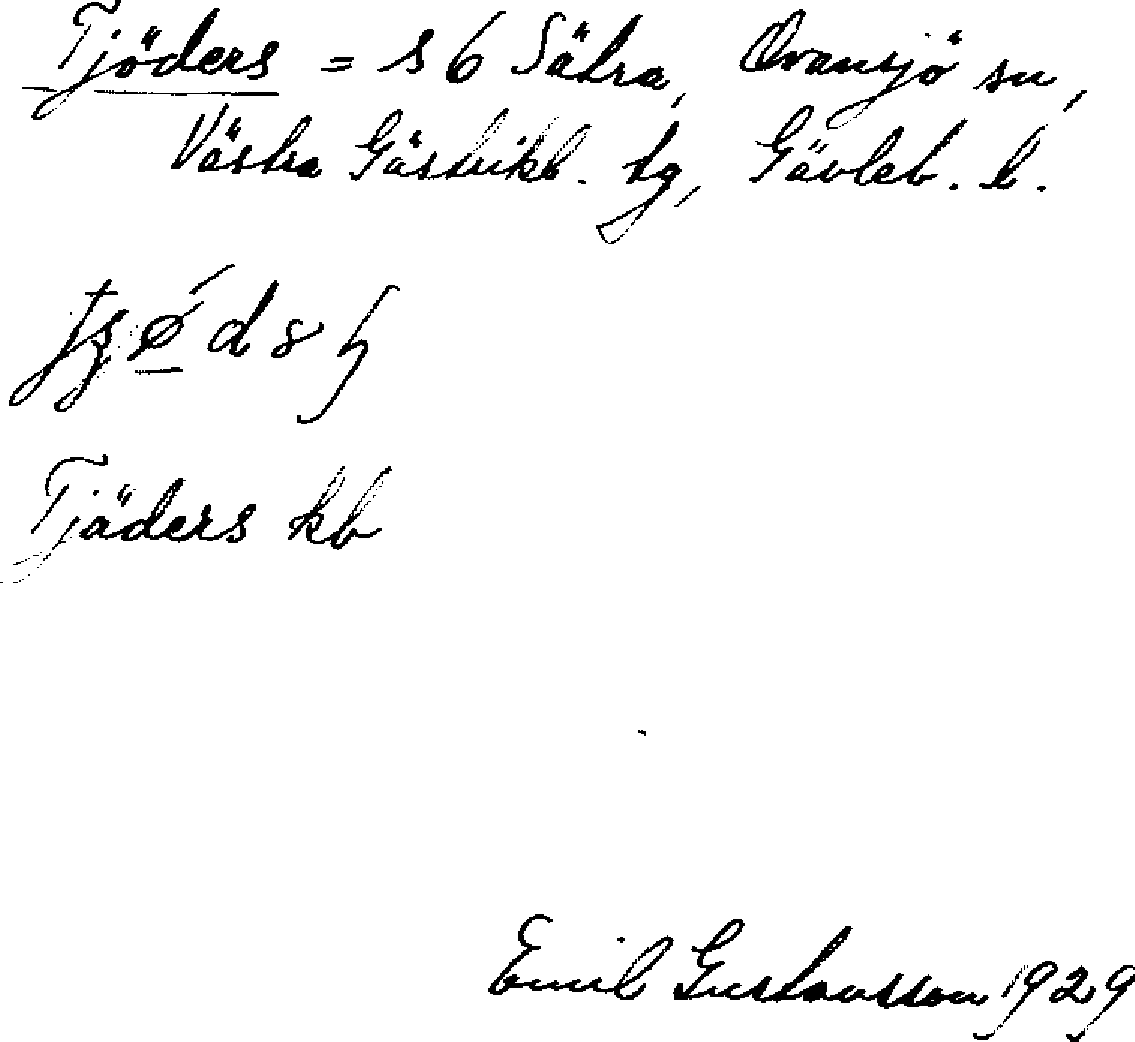 Tjöders = s 6 Sätra, Ovansjö sn,
Västra Gästrikl. tg, Gävleb. l.
Tjäders kb
Emil Gustavsson 1929